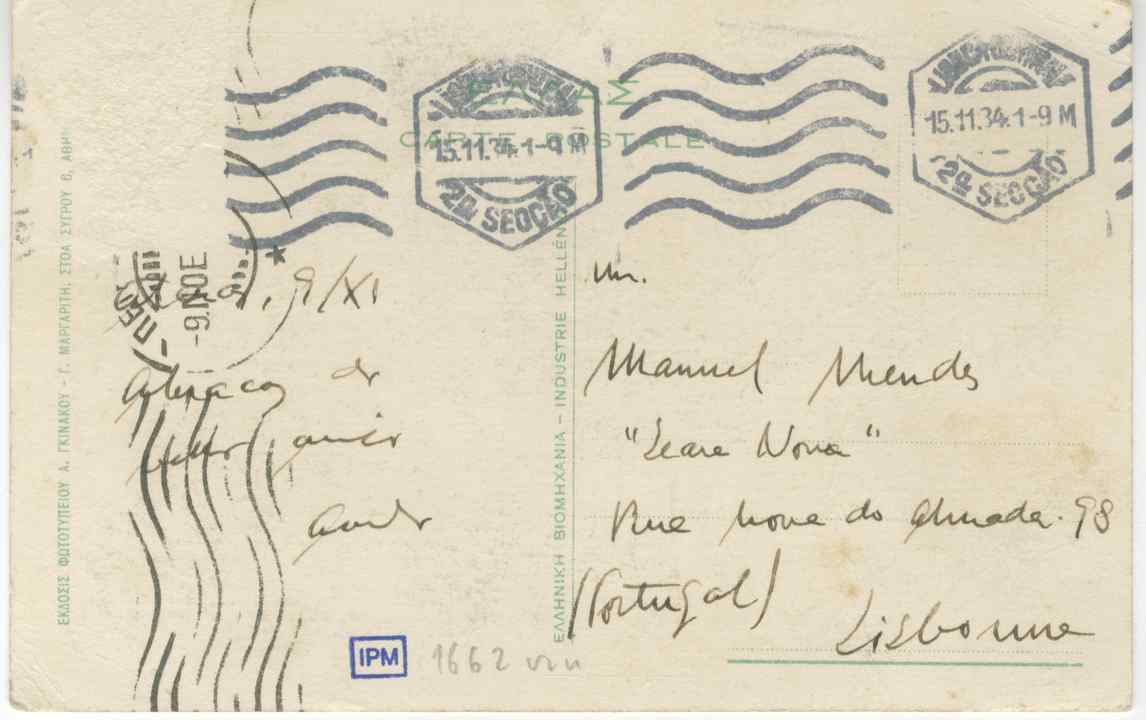 ΕΛΛΑΣ
CARTE POSTALE
15.11.34.1-9 M
2ª SECÇÃO
15.11.34.1-9 M
2ª SECÇÃO
-9.ΝΟΕ
9/XI
abraço do
velho amigo
Mr.
Manuel Mendes
"Seara Nova"
Rua Nova do Almada. 98
(Portugal)
Lisbonne
ΕΚΔΟΣΙΣ ΦΩΤΟΤΥΠΕΙΟΥ Α. ΓΚΙΝΑΚΟΥ - Γ. ΜΑΡΓΑΡΙΤΗ, ΣΤΟΑ ΣΥΓΡΟΥ 6, ΑΘΗ
ΕΛΛΗΝΙΚΗ ΒΙΟΜΗΧΑΝΙΑ - INDUSTRIE HELLEN
IPM
1662